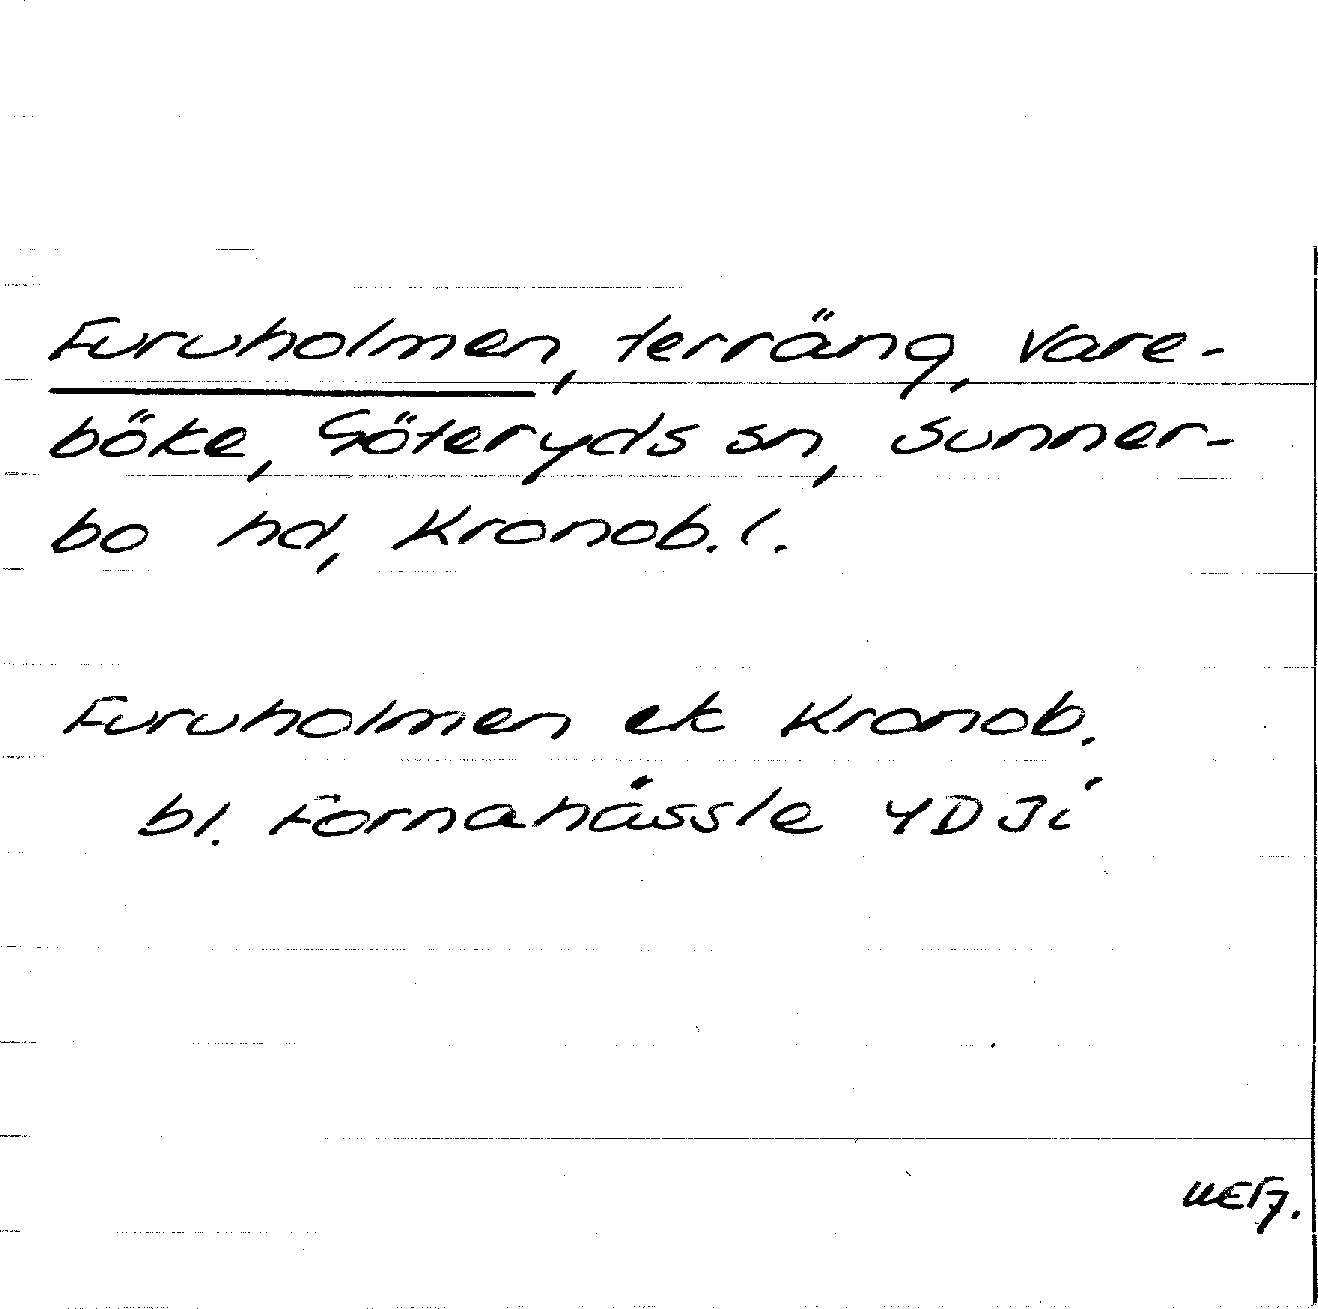 Furuholmen, terräng, Vare-
böke, Göteryds sn, Sunner-
bo hd, Kronob. l.
Furuholmen ek Kronob.
bl. Fornahässle 4D3i